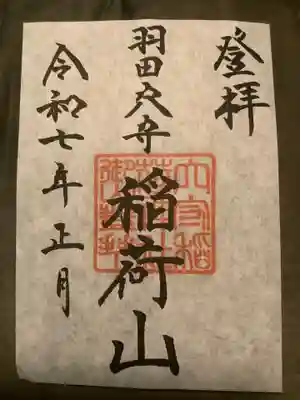 登拝
羽田穴守
稲荷山
令和七年正月